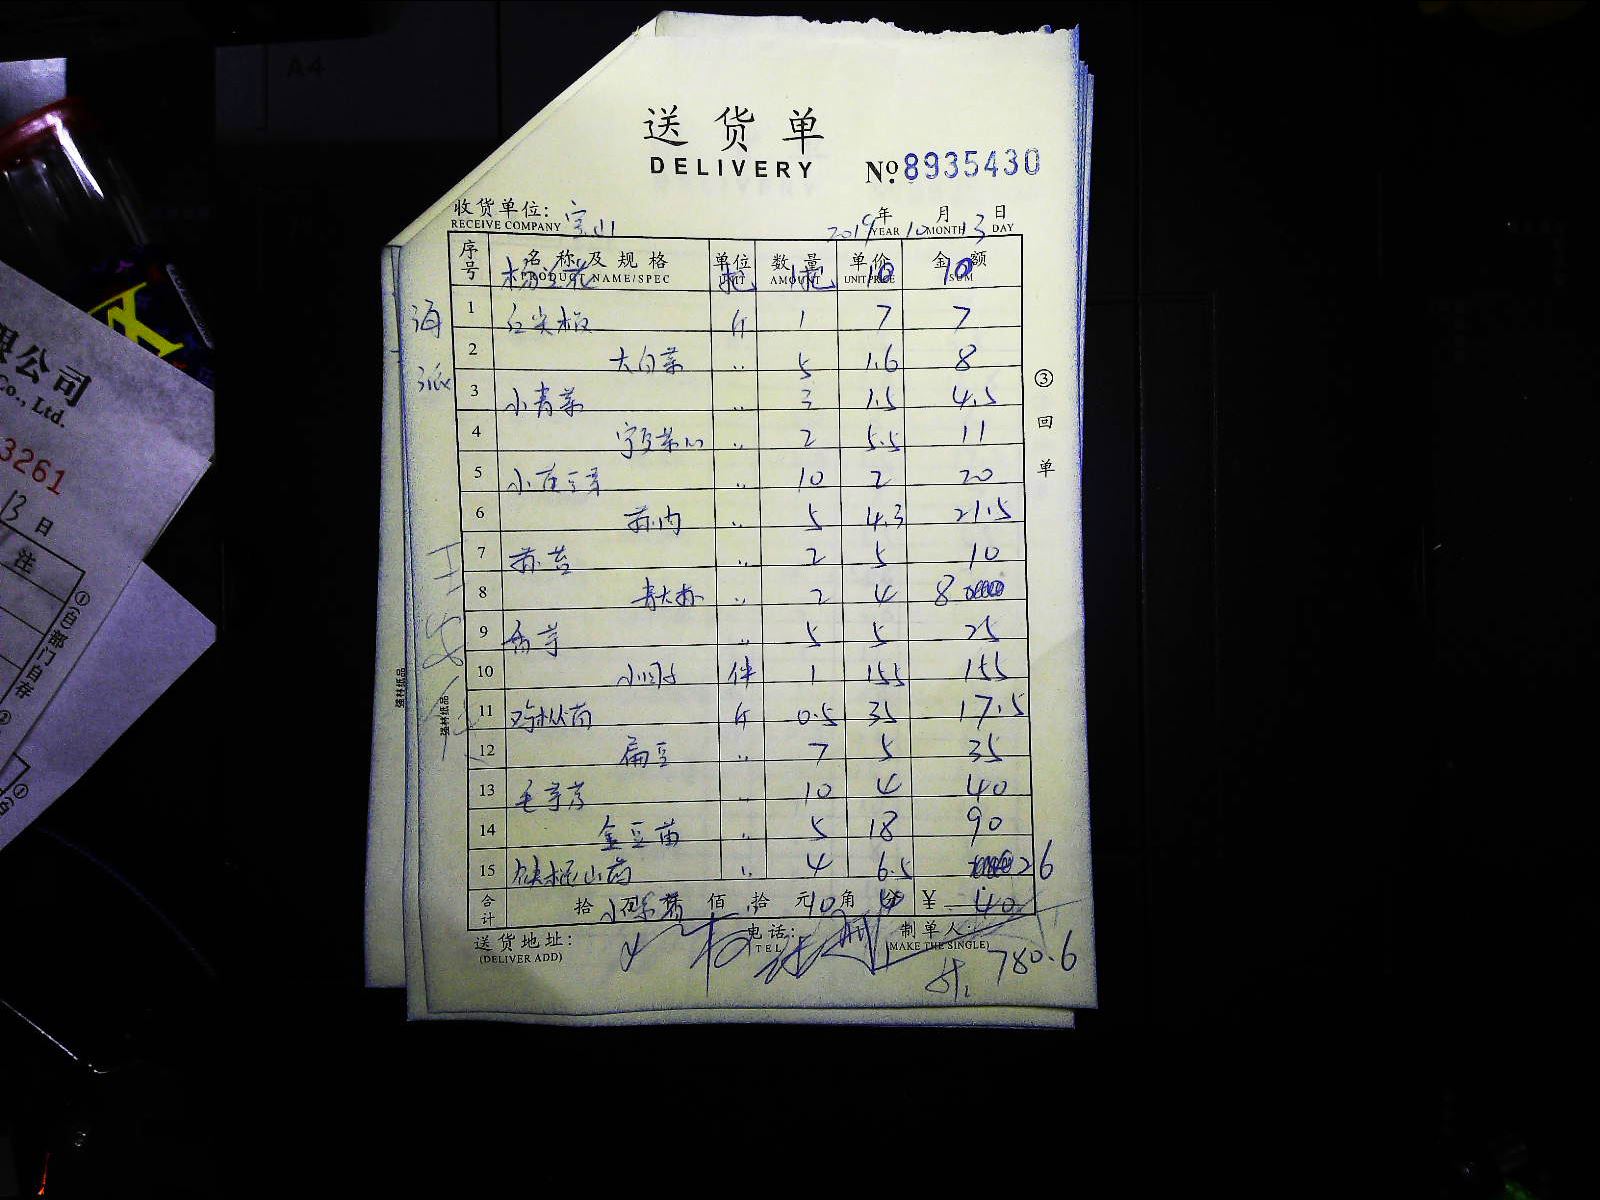 A4
送货单
DELIVERY
№ 8935430
收货单位: 宝山
RECEIVE COMPANY
2019年 10月 13日
YEAR MONTH DAY
序号 名称及规格 单位 数量 单价 金额
PRODUCT NAME/SPEC UNIT AMOUNT UNIT PRICE SUM
把 1把 10 10
1 红尖椒 斤 1 7 7
2 大白菜 〃 5 1.6 8
3 小青菜 〃 3 1.5 4.5
4 宁夏菜心 〃 2 5.5 11
5 小黄豆芽 〃 10 2 20
6 〃 5 4.3 21.5
7 蒜苔 〃 2 5 10
8 青大蒜 〃 2 4 8
9 香芋 〃 5 5 25
10 件 1 155 155
11 鸡枞菌 斤 0.5 35 17.5
12 扁豆 〃 7 5 35
13 毛芋艿 〃 10 4 40
14 金豆苗 〃 5 18 90
15 铁棍山药 〃 4 6.5 26
合计 拾 万 仟 佰 拾 元 角 分 ¥
10 4 40
送货地址:
(DELIVER ADD)
电话:
TEL
制单人:
(MAKE THE SINGLE)
780.6
③回单
海派
强林纸品
强林纸品
限公司
Co., Ltd.
3261
13日
注
①(白)部门自存
②
①(白)